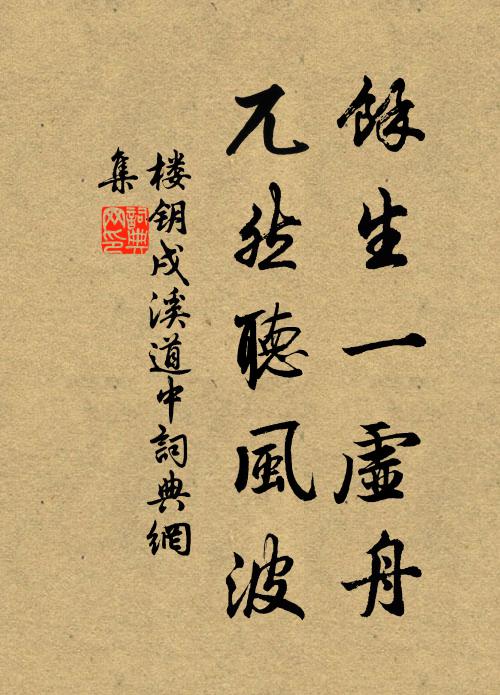 餘生一虛舟
兀然聽風波
楼钥戍溪道中詞典網
集
詞典網印